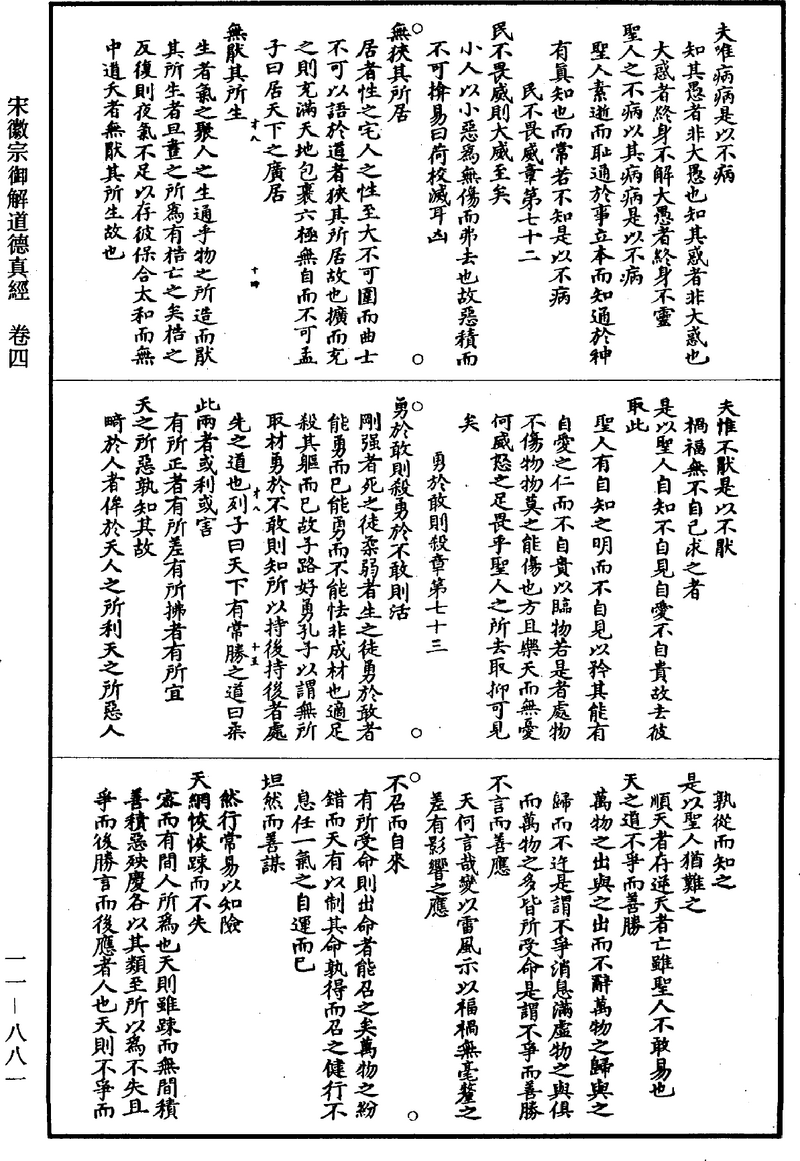 宋徽宗御解道德真經　卷四
夫唯病病是以不病
知其愚者非大愚也知其惑者非大惑也
大惑者終身不解大愚者終身不靈
聖人之不病以其病病是以不病
聖人素逝而恥通於事立本而知通於神
有真知也而常若不知是以不病
民不畏威章第七十二
民不畏威則大威至矣
小人以小惡為無傷而弗去也故惡積而
不可揜易曰荷校滅耳凶
無狹其所居
居者性之宅人之性至大不可圍而曲士
不可以語於道者狹其所居故也擴而充
之則充滿天地包裹六極無自而不可孟
子曰居天下之廣居
才八
十四
無猒其所生
生者氣之聚人之生通乎物之所造而猒
其所生者旦晝之所為有梏亡之矣梏之
反復則夜氣不足以存彼保合太和而無
中道夭者無猒其所生故也
夫惟不猒是以不猒
禍福無不自己求之者
是以聖人自知不自見自愛不自貴故去彼
取此
聖人有自知之明而不自見以矜其能有
自愛之仁而不自貴以臨物若是者處物
不傷物物莫之能傷也方且樂天而無憂
何威怒之足畏乎聖人之所去取抑可見
矣
勇於敢則殺章第七十三
勇於敢則殺勇於不敢則活
剛强者死之徒柔弱者生之徒勇於敢者
能勇而已能勇而不能怯非成材也適足
殺其軀而已故子路好勇孔子以謂無所
取材勇於不敢則知所以持後持後者處
先之道也列子曰天下有常勝之道曰柔
才八
十五
此兩者或利或害
有所正者有所差有所拂者有所宜
天之所惡孰知其故
畸於人者侔於天人之所利天之所惡人
孰從而知之
是以聖人猶難之
順天者存逆天者亡雖聖人不敢易也
天之道不爭而善勝
萬物之出與之出而不辭萬物之歸與之
歸而不迕是謂不爭消息滿虛物之與俱
而萬物之多皆所受命是謂不爭而善勝
不言而善應
天何言哉變以雷風示以福禍無毫釐之
差有影響之應
不召而自來
有所受命則出命者能召之矣萬物之紛
錯而天有以制其命孰得而召之健行不
息任一氣之自運而已
坦然而善謀
然行常易以知險
天網恢恢踈而不失
密而有間人所為也天則雖踈而無間積
善積惡殃慶各以其類至所以為不失且
爭而後勝言而後應者人也天則不爭而
一一—八八一